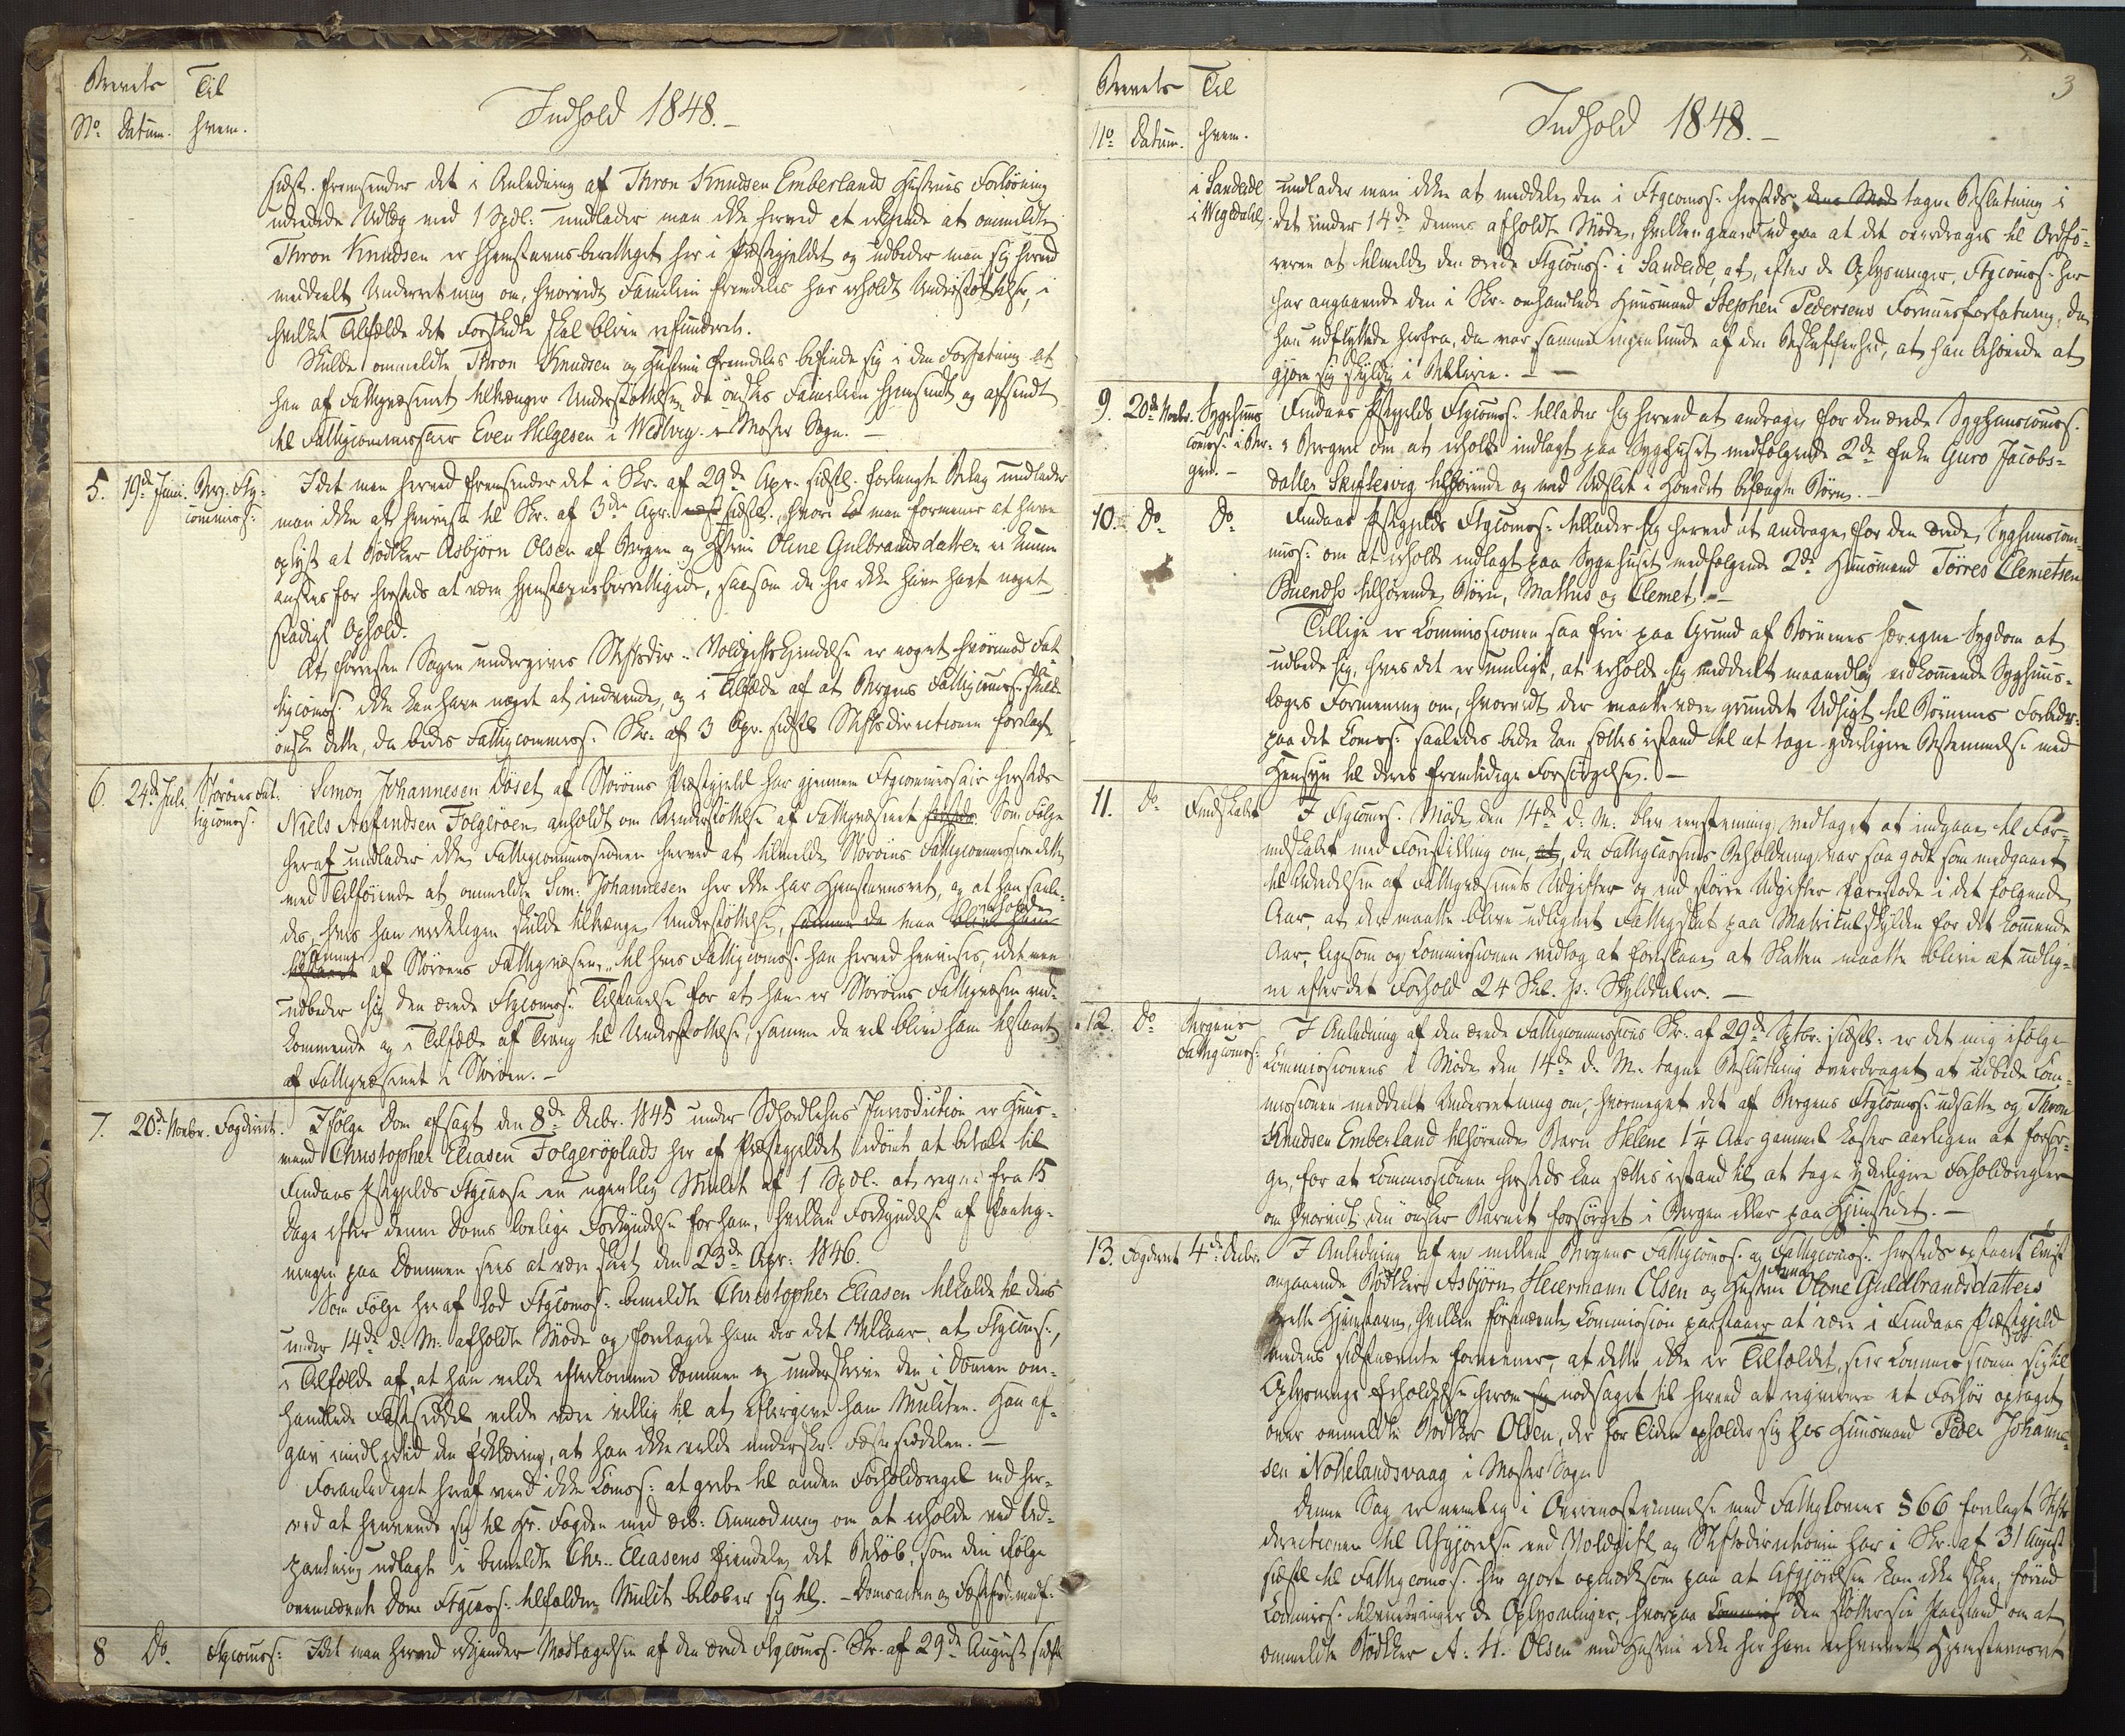 Brevets
Til
No Datum.
hvem.
Indhold 1848.-
sidstl. fremsender det i Anledning af Thron Knudsen Emberlands Hustrues Forløsning
udredede Udlæg med 1 Spdl. undlader man ikke herved at erkjende at ommeldte
Thron Knudsen er Hjemstavnsberettiget her i Præstegjeldet og udbeder man sig herved
meddeelt Underretning om, hvorvidt Familien fremdeles har erholdt Understøttelse, i
hvilket Tilfælde det Forskudte skal blive refunderet.
Skulde ommeldte Thron Knudsen og Hustrue fremdeles befinde sig i den Forfatning at
han af Fattigvæsenet tiltrænger Understøttelse, da ønskes Familien hjemsendt og afsendt
til Fattigcommissair Even Helgesen i Wedvig i Moster Sogn.-
5. 19de Juni Berg. Ftg:
commiss:
Idet man herved fremsender det i Skr. af 29de Apr. sidstl. forlangte Bilag undlader
man ikke at henvise til Skr. af 3de Apr. sidstl., hvori man formener at have
oplyst at Bødtker Asbjørn Olsen af Bergen og Hustrue Oline Gulbrandsdatter ei kunne
ansees for hersteds at være hjemstavnsberettigede, saasom de her ikke have havt noget
stadigt Ophold.
At forresten Sagen undergives Stiftsdir. Voldgifts Kjendelse er noget hvorimod Fat-
tigcomss. ikke kan have noget at indvende, og i Tilfælde af at Bergens Fattigcomss. skulde
ønske dette, da bedes Fattigcommiss. Skr. af 3 Apr. sidstl. Stiftsdirectionen forelagt.
6. 24de Juli Storøens Fat-
tigcomss.
Simon Johannesen Døset af Storøens Præstegjeld har gjennem Ftgcommissair hersteds
Niels Anfindsen Folgerøen anholdt om Understøttelse af Fattigvæsenet hersteds. Som Følge
heraf undlader ikke Fattigcommissionen herved at tilmelde Storøens Fattigcommission dette
med Tilføiende at ommeldte Sim. Johannesen her ikke har Hjemstavnsret, og at han saale-
des, hvis han virkeligen skulde tiltrænge Understøttelse, samme da maa erholde
samme af Storøens Fattigvæsen, til hvis Fattigcomss. han herved henvises, idet man
udbeder sig den ærede Ftgcomss. Tilstaaelse for at han er Storøens Fattigvæsen ved-
kommende og i Tilfælde af Trang til Understøttelse, samme da vil blive ham tilstaaet
af Fattigvæsenet i Storøen.-
7. 20de Novbr. Fogderiet.
Ifølge Dom afsagt den 8de Decbr. 1845 under Søndhordlehns Jurisdiction er Huus-
mand Christopher Eliasen Folgerøplads her af Præstegjeldet idømt at betale til
Findaas Pstgjelds Ftgcasse en ugentlig Mulct af 1 Spdl. at regne fra 15
Dage efter denne Doms lovlige Forkyndelse for ham, hvilken Forkyndelse af Paateg-
ningen paa Dommen sees at være skeet den 23de Apr. 1846.
Som Følge heraf lod Ftgcomss. bemeldte Christopher Eliasen tilkalde til dens
under 14de d. M. afholdte Møde og forelagde ham der det Vilkaar, at Ftgcomss.,
i Tilfælde af, at han vilde efterkomme Dommen og underskrive den i Dommen om-
handlede Fæsteseddel vilde være villig til at eftergive ham Mulcten. Han af-
gav imidlertid den Erklæring, at han ikke vilde underskr. Fæstesedelen.-
Foranlediget heraf veed ikke Comss. at gribe til anden Forholdsregel end her-
ved at henvende sig til Hr. Fogden med ærb. Anmodning om at erholde ved Ud-
pantning udlagt i bemeldte Chr. Eliasens Eiendele, det Beløb, som den ifølge
ovennævnte Dom Ftgcass. tilfaldne Mulct beløber sig til.- Domsacten og Fæstesed. medf.
8 Do. Ftgcomss:
Idet man herved erkjender Modtagelsen af den ærede Ftgcomss. Skr. af 29de August sidstl.
3
Brevets
Til
No Datum.
hvem.
Indhold 1848.-
i Sandeid
i Wegsdahl.
undlader man ikke at meddele den i Ftgcomss. hersteds dens Møde tagne Beslutning i
det under 14de dennes afholdt Møde, hvilken gaaer ud paa at det overdrages til Ordfø-
reren at tilmelde den ærede Ftgcomss. i Sandeid, at, efter de Oplysninger, Ftgcomss. her
har angaaende den i Skr. omhandlede Huusmand Stephen Pedersens Formuesforfatning, da
han udflyttede herfra, da var samme ingenlunde af den Beskaffenhed, at han behøvede at
gjøre sig skyldig i Betlerie.-
9. 20de Novbr. Sygehuus
comss. i Ber-
gen.-
Findaas Pstgjelds Ftgcomss. tillader sig herved at andrage for den ærede Sygehuuscomss.
i Bergen om at erholde indlagt paa Sygehuset medfølgende 2de Enke Guro Jacobs-
datter Skiflesvig tilhørende og med Udslet i Hovedet befængte Børn.-
10. Do Do
Findaas Pstgjelds Ftgcomss. tillader sig herved at andrage for den ærede Sygehuuscom-
miss. om at erholde indlagt paa Sygehuset medfølgende 2de Huusmand Tørres Clemetsen
Buends tilhørende Børn, Mathis og Clemet.-
Tillige er Commissionen saa frie paa Grund af Børnenes særegne Sygdom at
udbede sig, hvis det er muligt, at erholde sig meddeelt maanedlig vedkommende Sygehuus-
læges Formening om, hvorvidt der maatte være grundet Udsigt til Børnenes Forbedr.
paa det Comss. saaledes bedre kan sættes istand til at tage yderligere Bestemmelse med
Hensyn til deres fremtidige Forsørgelse.-
11. Do
I Ftgcomss. Møde den 14de d. M. blev eenstemmig vedtaget at indgaae til For-
mdskabet med Forestilling om, at, da Fattigcassens Beholdning var saa godt som medgaaet
til Udredelsen af Fattigvæsenets Udgifter og end større Udgifter forestode i det følgende
Aar, at der maatte blive udlignet Fattigskat paa Matriculskylden for det kommende
Aar, ligesom og Commissionen vedtog at foreslaae at Skatten maatte blive at udlig-
ne efter det Forhold 24 Skl. pr. Skylddaler.-
12. Do Bergens
Fattigcomss:
I Anledning af den ærede Fattigcommissions Skr. af 29de Sptbr. sidstl. er det mig ifølge
Commissionens i Møde den 14de d. M. tagne Beslutning overdraget at udbede Com-
missionen meddeelt Underretning om, hvormeget det af Bergens Ftgcomss. udsatte og Thron
Knudsen Emberland tilhørende Barn Helene 1¼ Aar gammel koster aarligen at forsør-
ge, for at Commissionen hersteds kan sættes istand til at tage yderligere Forholdsregler
om hvorvidt den ønsker Barnet forsørget i Bergen eller paa Hjemstedet.-
13. Fogderiet 4de Decbr.
I Anledning af en mellem Bergens Fattigcomss. og Fattigcomss. hersteds opstaaet Tvist
angaaende Bødtker Asbjørn Heiermann Olsen og Hustrue Anne Oline Guldbrandsdatters
rette Hjemstavn, hvilken førstnævnte Commission paastaaer at være i Findaas Præstegjeld
medens sidstnævnte formener, at dette ikke er Tilfældet, seer Commissionen sig til
Oplysnings Erholdelse herom nødsaget til herved at reqvirere et Forhør optaget
over ommeldte Bødtker Olsen, der for Tiden opholder sig hos Huusmand Peder Johanne-
sen i Nottelandsvaag i Moster Sogn.
Denne Sag er nemlig i Overensstemmelse med Fattiglovens §66 forelagt Stifts-
directionen til Afgjørelse ved Voldgift og Stiftsdirectionen har i Skr. af 31 August
sidstl. til Fattigcomss. her gjort opmærksom paa at Afgjørelsen kan ikke skee, førend
Commiss. tilveiebringer de Oplysninger, hvorpaa den støtter sin Paastand om at
ommeldte Bødtker A. H. Olsen med Hustrue ikke her have erhvervet Hjemstavnsret